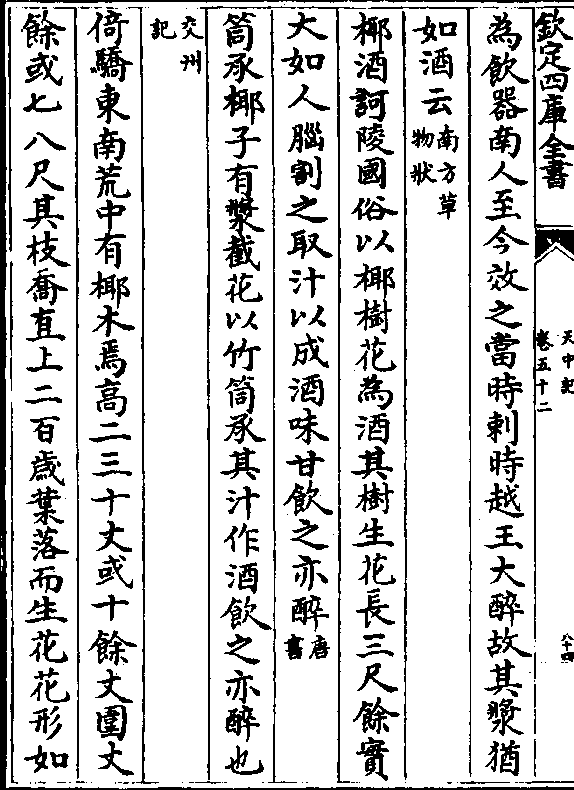 欽定四庫全書
天中記
卷五十二
八十四
為飲器南人至今效之當時刺時越王大醉故其漿猶
如酒云南方草物狀
椰酒訶陵國俗以椰樹花為酒其樹生花長三尺餘實
大如人腦割之取汁以成酒味甘飲之亦醉唐書
筒承椰子有漿截花以竹筒承其汁作酒飲之亦醉也
交州記
倚驕東南荒中有椰木焉高二三十丈或十餘丈圍丈
餘或七八尺其枝喬直上二百歲葉落而生花花形如